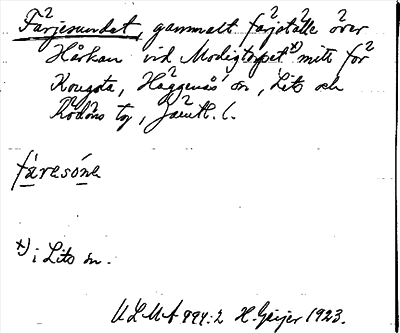 Färjesundet, gammalt färjställe över
Hårkan vid Modigtorpet x) mitt för
Kougsta, Häggenås sn, Lits och
Rödöns tg, Jämtl. l.
färesóne
x) i Lits sn.
ULMA 994:2 H. Geijer 1923.